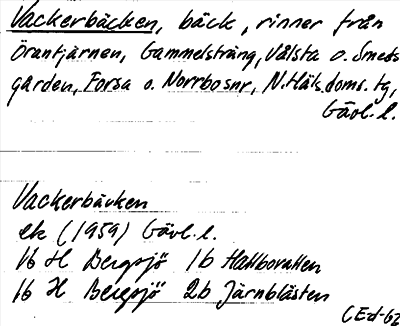 Vackerbäcken, bäck, rinner från
Örantjärnen, Gammelsträng, Vålsta o. Smeds
gården, Forsa o. Norrbosnr, N.Häls.doms. tg,
Gävl.l.
Vackerbäcken
ek (1959) Gävl.l.
16 H Bergsjö 1b Hallbovallen
16 H Bergsjö 2b Järnblästen